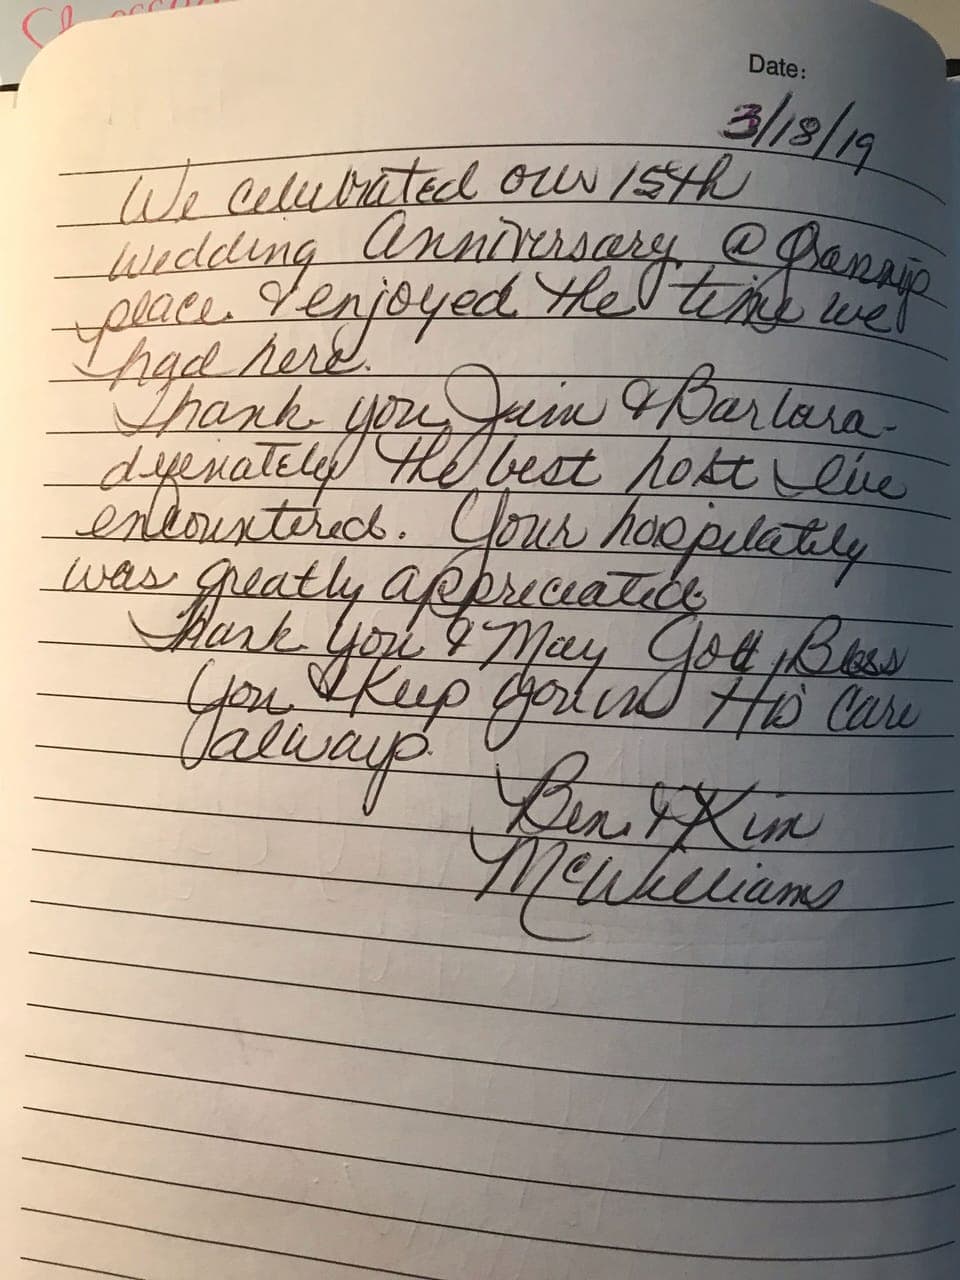 Date:
3/18/19
We celebrated our 15th
wedding anniversary @
place & enjoyed the time we
had here.
Thank you Jim & Barbara-
the best host I've
encountered. Your hospilatily
was greatly appreciated
Thank you & May God Bless
You & Keep you in His Care
always.
Ben & Kim
McWilliams